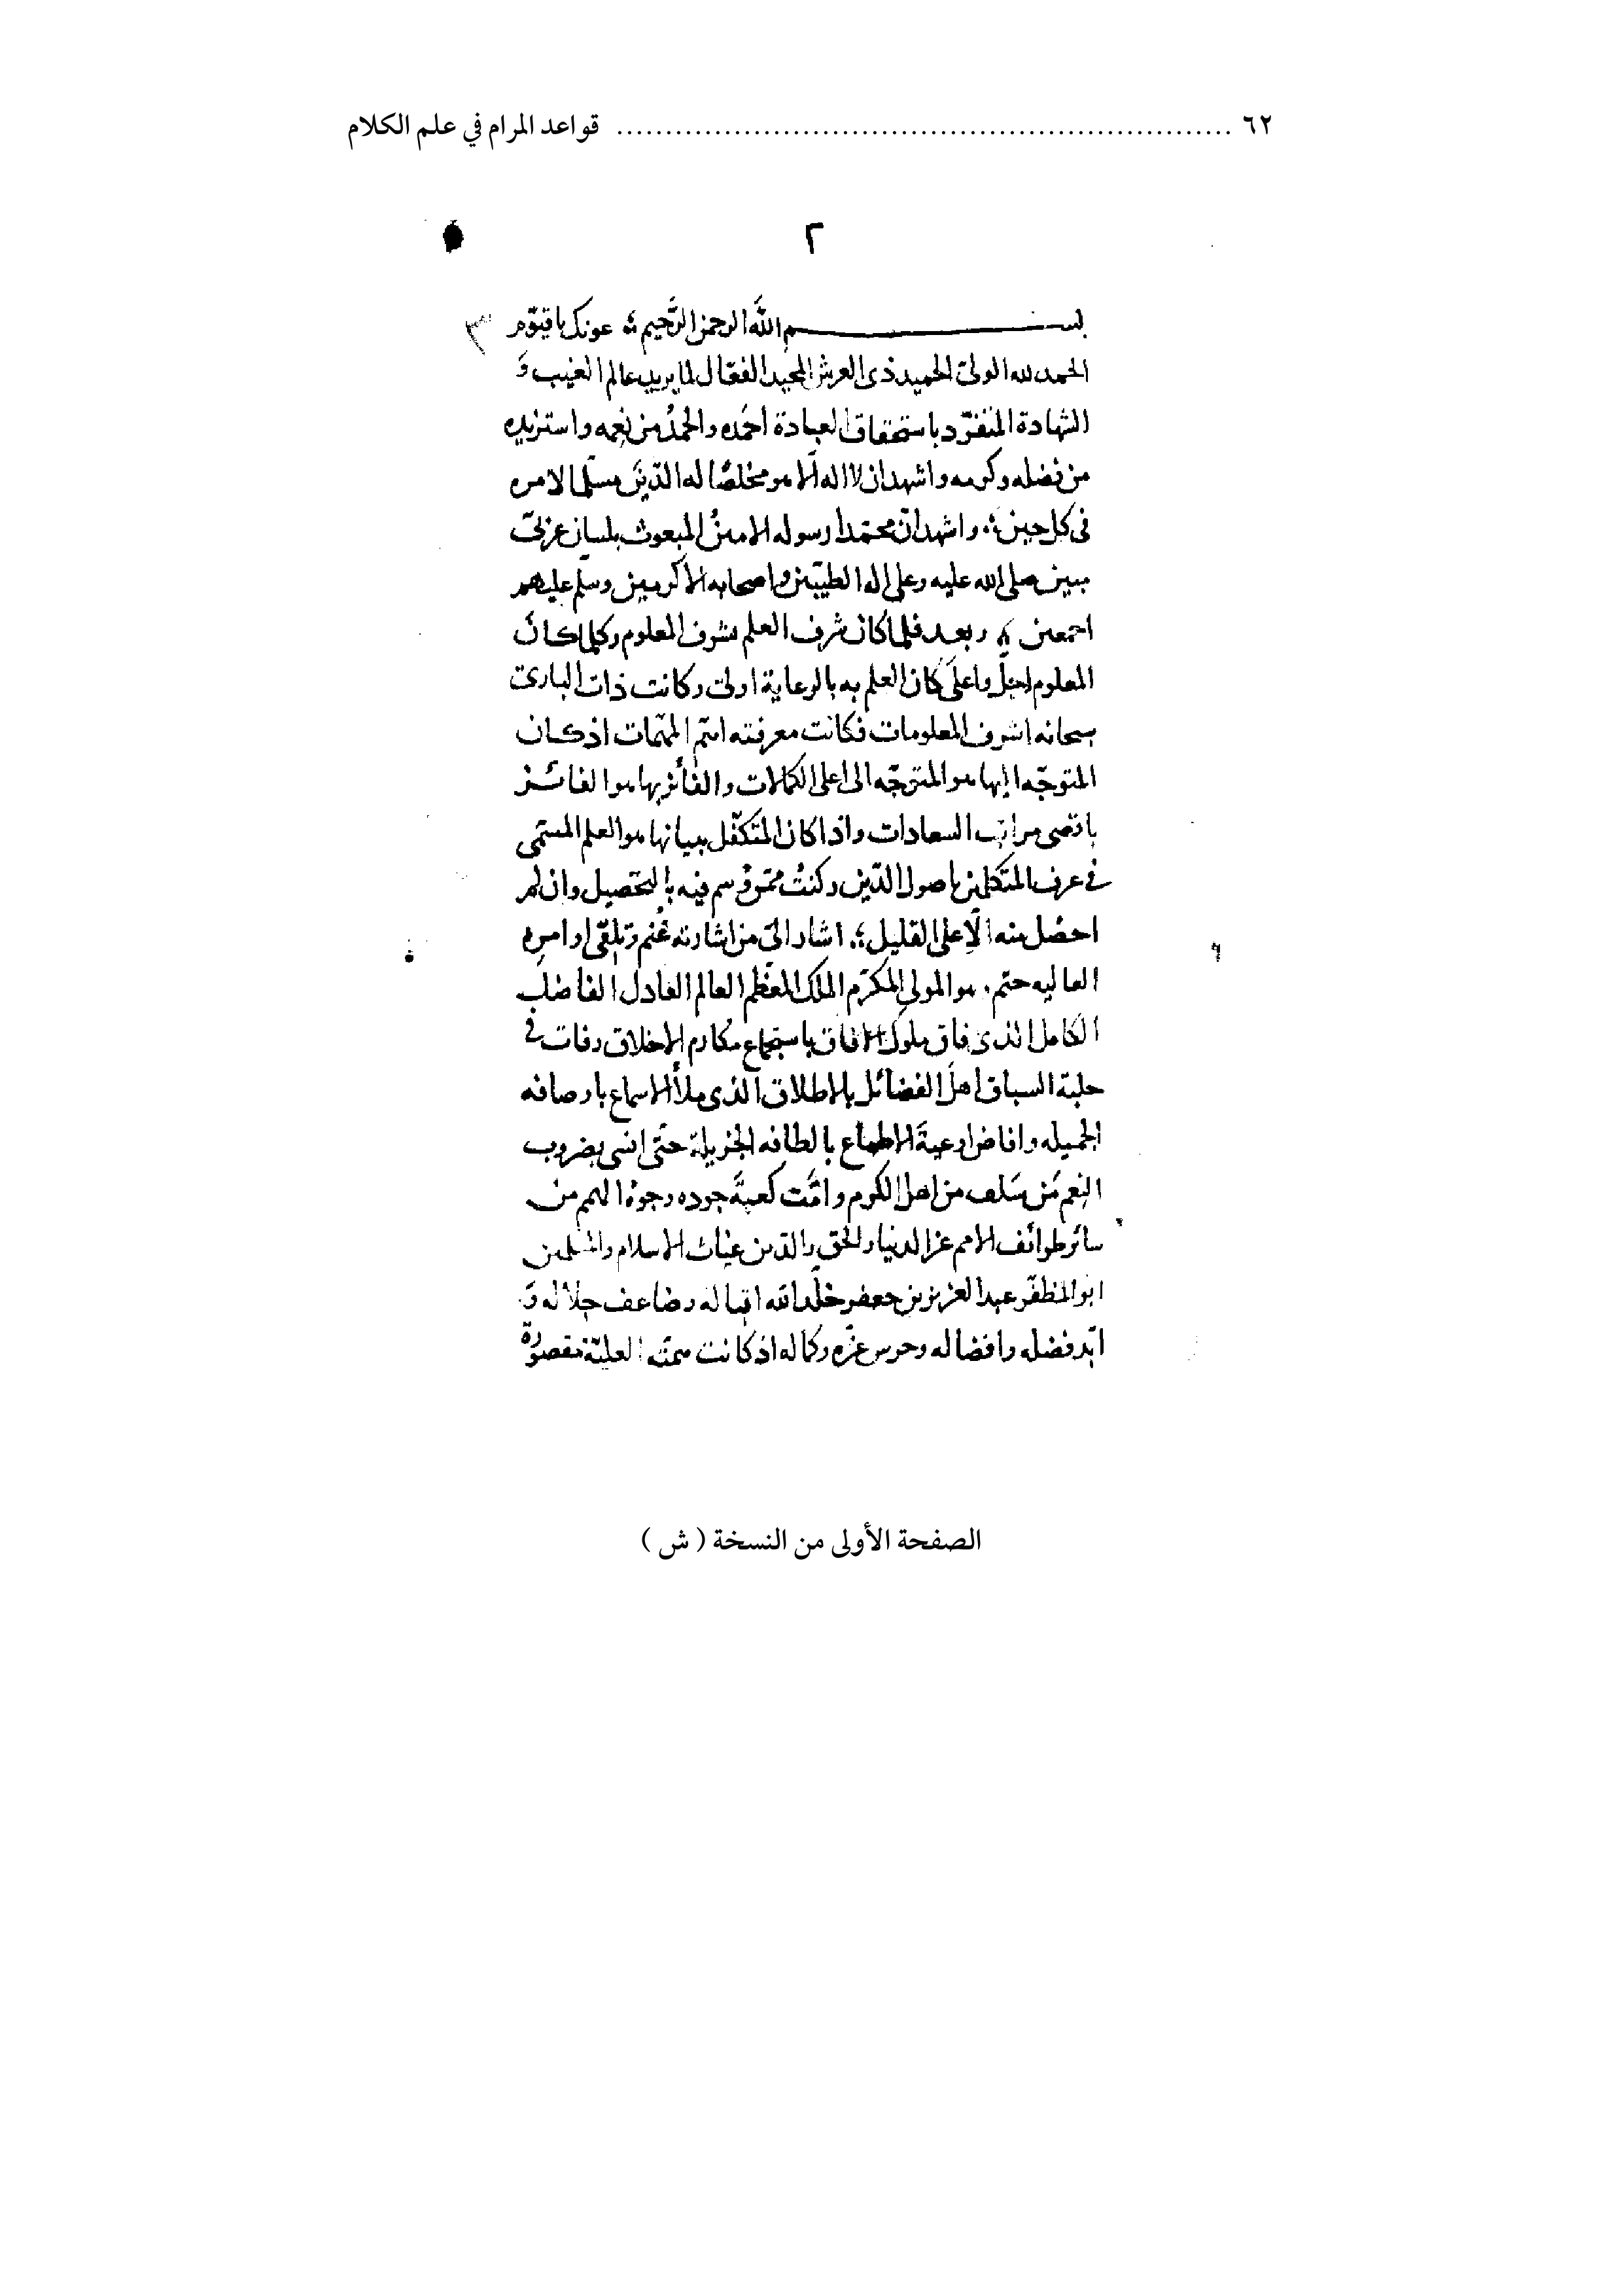 ٦٢ ............................................................... قواعد المرام في علم الكلام
٢
بسم الله الرحمن الرحيم عونك يا قيوم
الحمد لله الولىّ الحميد ذى العرش المجيد الفعّال لما يريد عالم الغيب و
الشهادة المتفرّد باستحقاق العبادة احمده والحمدُ من نعمه واستزيده
من فضله وكرمه واشهد ان لا اله الّا هو مخلصًا له الدّين مسلّما لامره
فى كل حين واشهد انّ محمّدا رسوله الامينُ المبعوث بلسان عربىّ
مبين صلى الله عليه وعلى اله الطيّبين واصحابه الاكرمين وسلّم عليهم
اجمعين وبعد فلما كان شرف العلم بشرف المعلوم وكلما كان
المعلوم اجلّ واعلى كان العلم به بالرعاية اولى وكانت ذات البارئ
سبحانه اشرف المعلومات فكانت معرفته اتم المهمّات اذ كان
المتوجّه اليها هو المتوجّه الى اعلى الكمالات والفائز بها هو الفائز
باقصى مراتب السعادات واذا كان المتكفّل ببيانها هو العلم المسمّى
فى عرف المتكلمين باصول الدّين وكنتُ ممّن وُسم فيه بالتحصيل وان لم
احصُل منه الّا على القليل اشار الىّ من اشارته غُنم وتلقّى اوامره
العاليه حتم هو المولى المكرّم الملك المعظّم العالم العادل الفاضل
الكامل الذى فاق ملوك الافاق باستجماع مكارم الاخلاق وفات فى
حلبة السباق اهل الفضائل بالاطلاق الذى ملأ الاسماع باوصافه
الجميله وافاض اوعيةَ الاطماع بالطافه الجزيلة حتّى انسى بضروب
النعم مَن سَلف من اهل الكرم وامّت كعبةَ جوده وجوهُ الهمم من
سائر طوائف الامم عز الدنيا والحق والدين غياث الاسلام والمسلمين
ابو المظفّر عبد العزيز بن جعفر خلّد الله اقباله وضاعف جلاله و
ابّد فضله وافضاله وحرس عزّه وكماله اذ كانت همته العليّة مقصورة
الصفحة الأولى من النسخة ( ش )